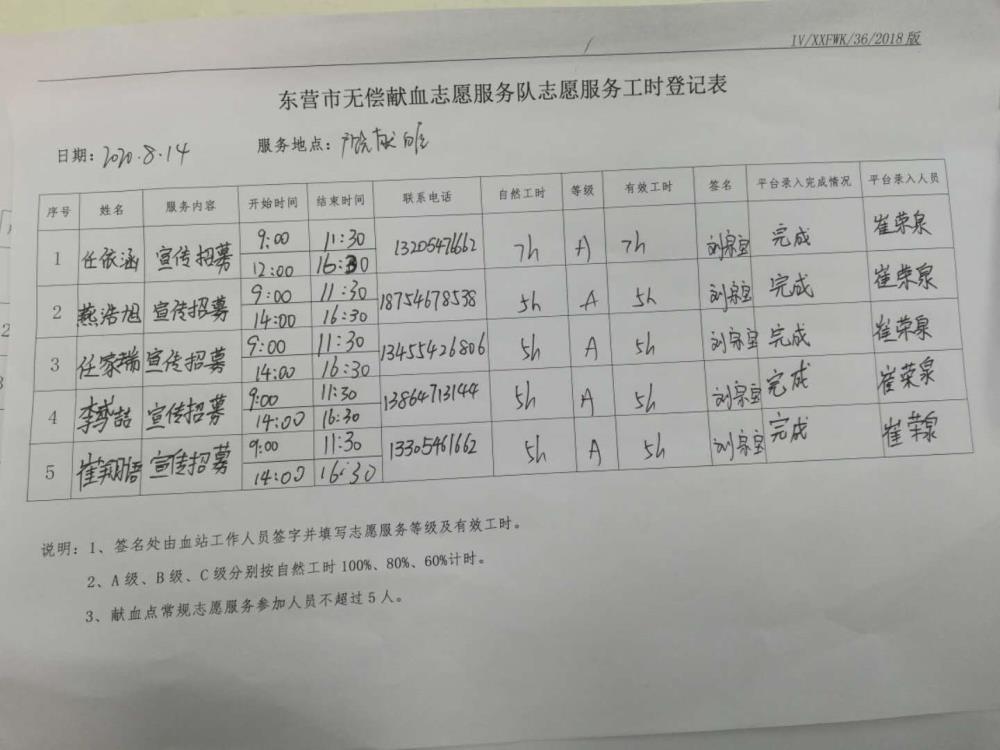 IV/XXFWK/36/2018版
东营市无偿献血志愿服务队志愿服务工时登记表
日期：2020.8.14 服务地点：
序号 姓名 服务内容 开始时间 结束时间 联系电话 自然工时 等级 有效工时 签名 平台录入完成情况 平台录入人员
1 任依涵 宣传招募 9:00 11:30 13205471662 7h A 7h 刘宗宝 完成 崔荣泉
12:00 16:30
2 燕浩旭 宣传招募 9:00 11:30 18754678538 5h A 5h 刘宗宝 完成 崔荣泉
14:00 16:30
3 任家瑞 宣传招募 9:00 11:30 13455426806 5h A 5h 刘宗宝 完成 崔荣泉
14:00 16:30
4 宣传招募 9:00 11:30 13864713144 5h A 5h 刘宗宝 完成 崔荣泉
14:00 16:30
5 崔翔语 宣传招募 9:00 11:30 13305461662 5h A 5h 刘宗宝 完成 崔荣泉
14:00 16:30
说明：1、签名处由血站工作人员签字并填写志愿服务等级及有效工时。
2、A级、B级、C级分别按自然工时100%、80%、60%计时。
3、献血点常规志愿服务参加人员不超过5人。